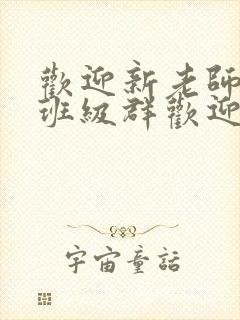 歡迎新老師
班級群歡迎
宇宙童話